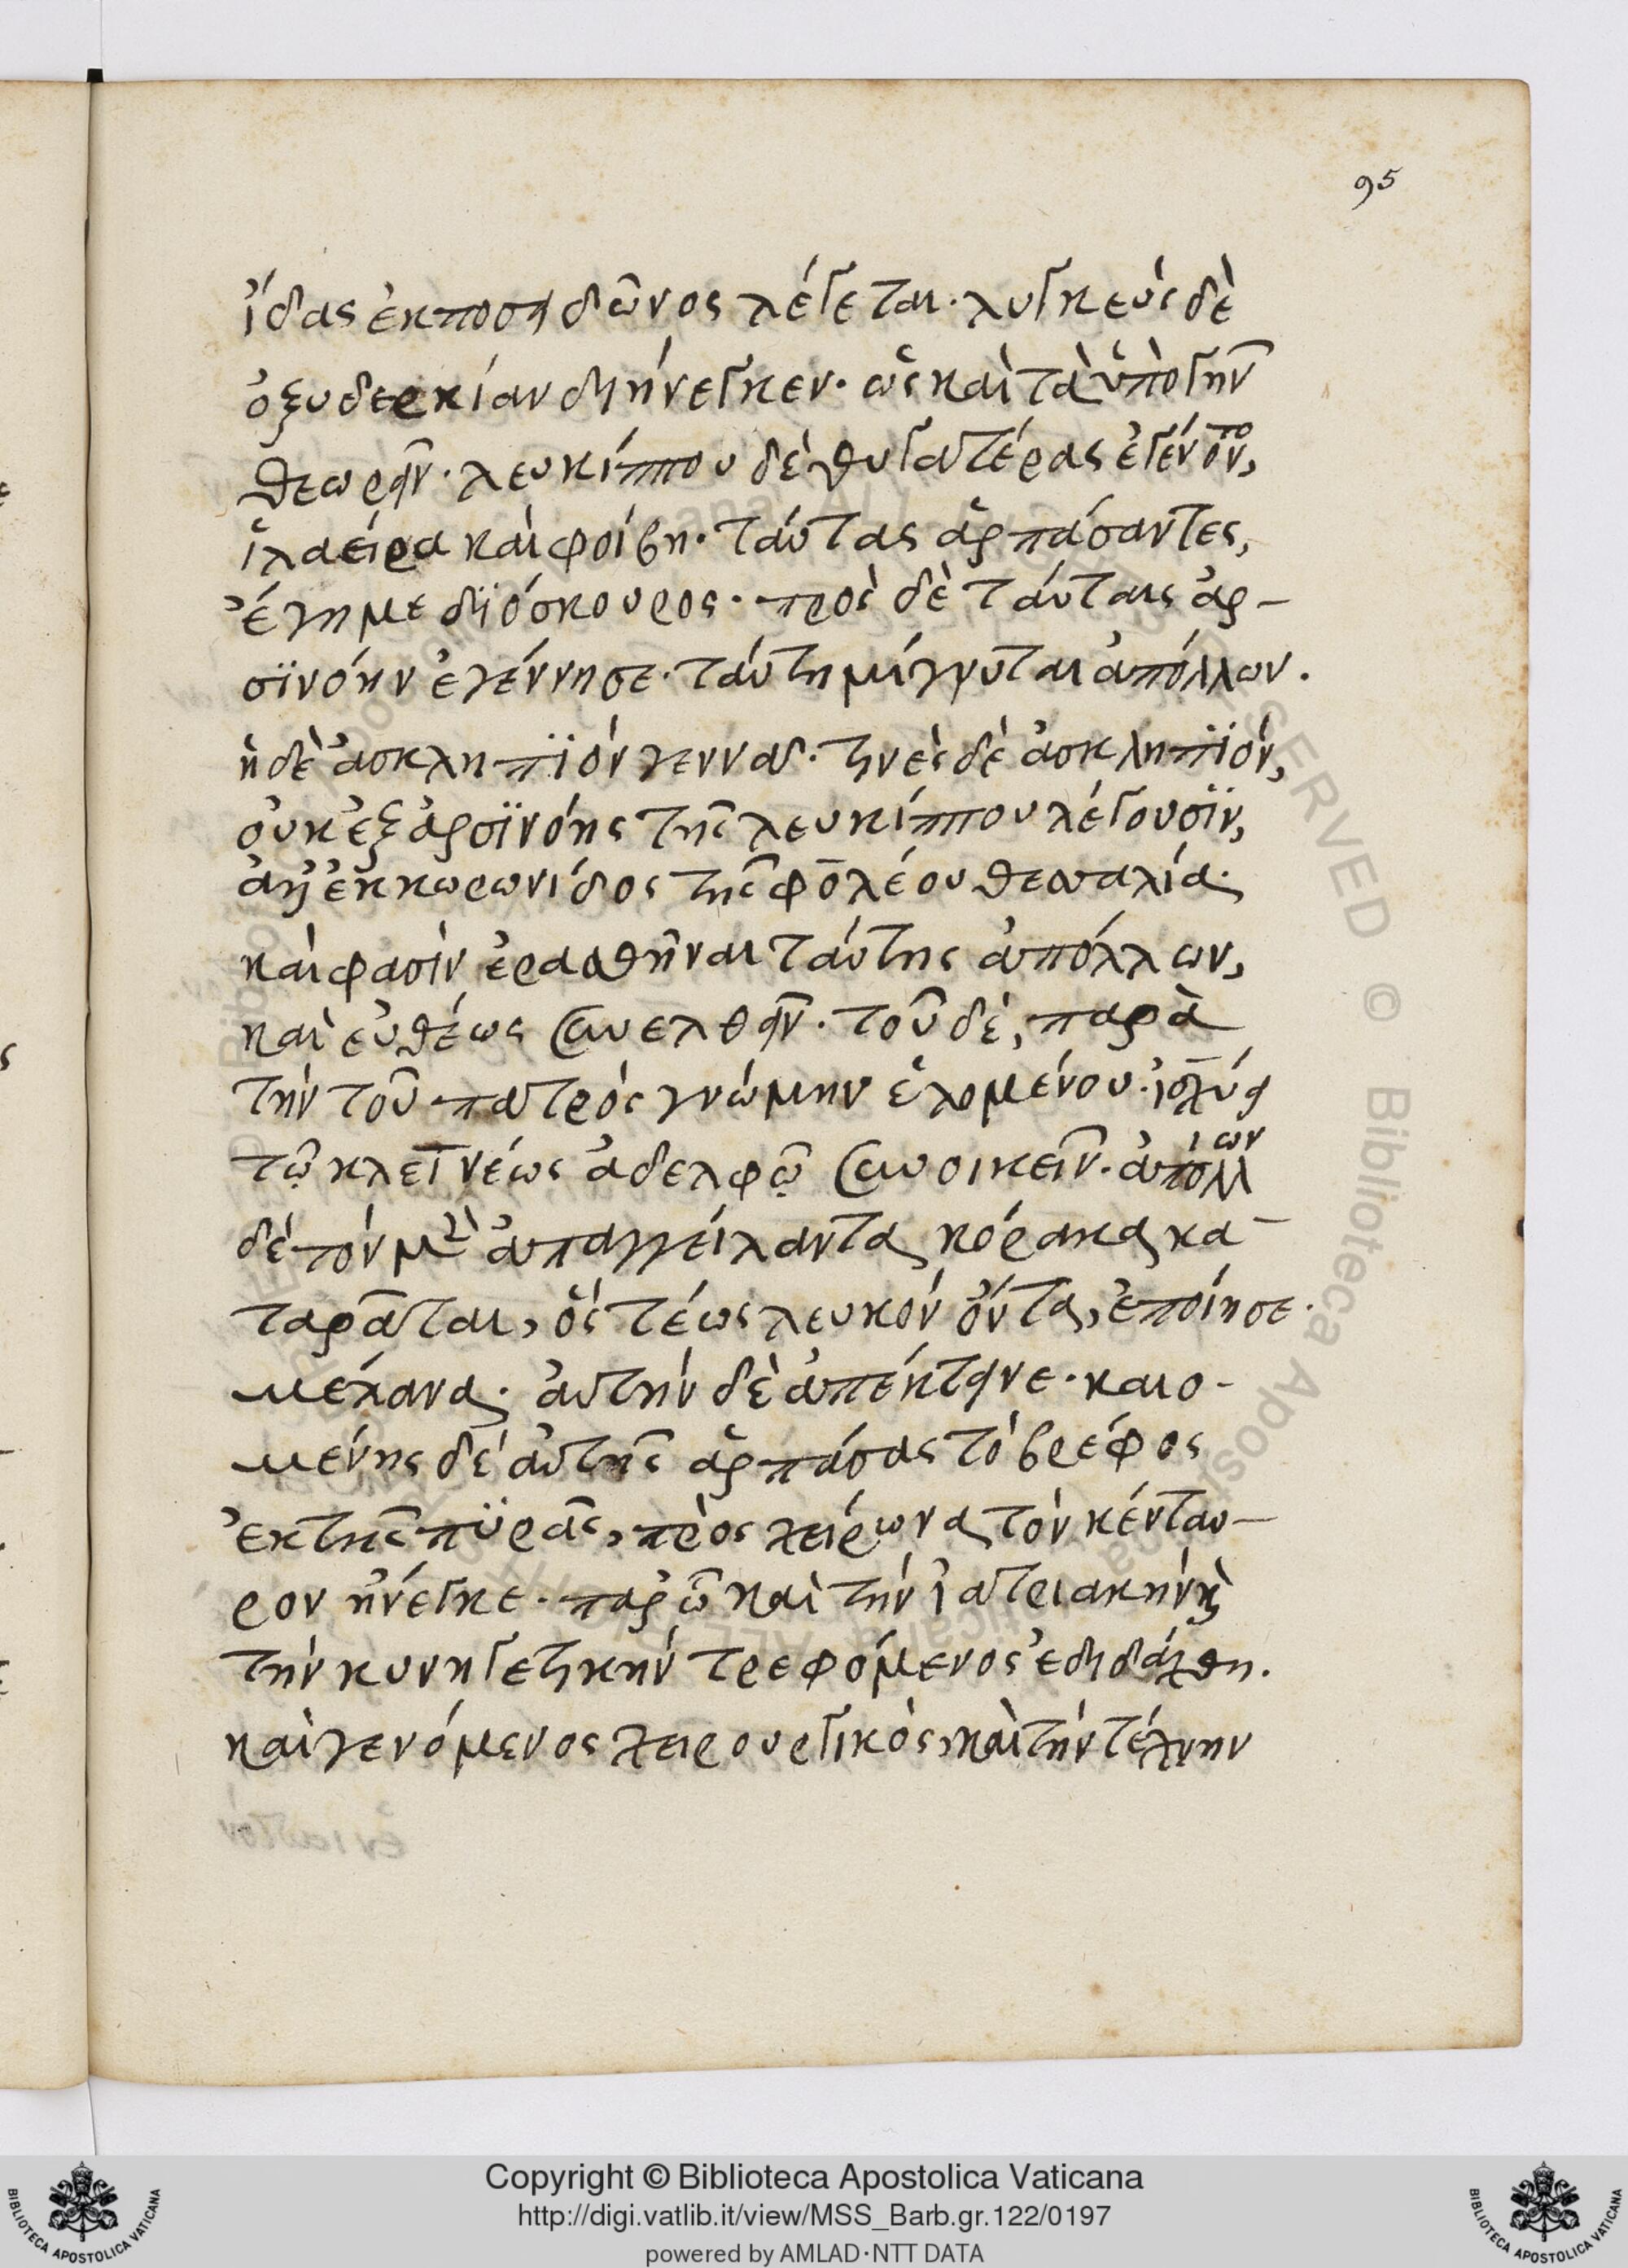 95
ἴδας ἐκ ποσειδῶνος λέγεται· λυγκεὺς δὲ
ὀξυδερκίαν διήνεγκεν· ὡς καὶ τὰ ὑπὸ γῆν
θεωρεῖν· λευκίππου δὲ θυγατέρας ἐγένοντο,
ἱλαείρα καὶ φοίβη· ταύτας ἁρπάσαντες,
ἔγημε διόσκουρος· πρὸς δὲ ταύταις ἀρ-
σϊνόην ἐγέννησε· ταύτη μίγνυται ἀπόλλων.
ἡ δὲ ἀσκληπϊὸν γεννᾶ· τινὲς δὲ ἀσκληπϊὸν,
οὐκ ἐξ ἀρσϊνόης τῆς λευκίππου λέγουσϊν,
ἀλλ' ἐκ κωρωνίδος τῆς φολέου θεσσαλία·
καὶ φασὶν ἐρασθῆναι ταύτης ἀπόλλων,
καὶ εὐθέως συνελθεῖν· τοῦ δὲ, παρὰ
τὴν τοῦ πατρὸς γνώμην ἑλομένου· ἰσχύει
τῷ κλεϊνέως ἀδελφῷ συνοικεῖν· ἀπόλλων
δὲ τὸν μὲν ἀπαγγείλαντα κόρακα κα-
ταρᾶται, ὃς τέως λευκὸν ὄντα, ἐποίησε·
μέλανα· αὐτὴν δὲ ἀπέκτεινε· καιο-
μένης δὲ αὐτῆς ἁρπάσας τὸ βρέφος
ἐκ τῆς πϋρᾶς, πρὸς χείρωνα τὸν κένταυ-
ρον ἤνεγκε· παρ' ᾧ καὶ τὴν ἰατριακὴν καὶ
τὴν κυνηγετικὴν τρεφόμενος ἐδιδάχθη.
καὶ γενόμενος χειρουργικὸς, καὶ τὴν τέχνην
Copyright © Biblioteca Apostolica Vaticana
http://digi.vatlib.it/view/MSS_Barb.gr.122/0197
powered by AMLAD·NTT DATA
BIBLIOTECA APOSTOLICA VATICANA
BIBLIOTECA APOSTOLICA VATICANA